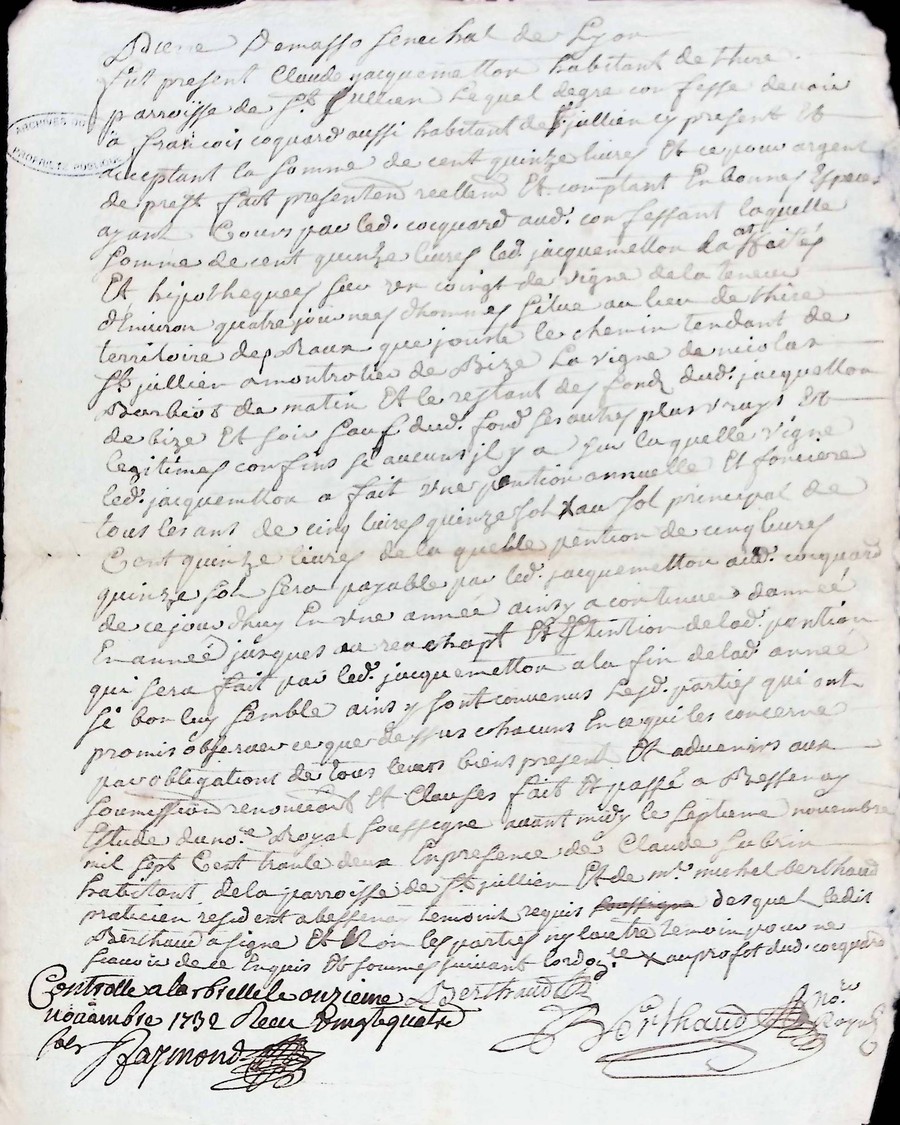 Pierre Demasso senechal de Lyon
fut present Claude jacquemetton habitant de thire
parroisse de St Jullien Lequel de gre confesse devoir
à françois coquard aussi habitant de St jullien cy present Et
acceptant la somme de cent quinze livres Et ce pour argent
de prest fait presentem reellem Et comptant En bonnes Especes
ayant Cours par led. cocquard aud. confessant laquelle
somme de cent quinze livres led. jacquemetton a affaités
Et hipothequés sur un coingt de vigne de la teneur
d'Environ quatre journes d'hommes situe au lieu de thire
territoire des Raux que jouste le chemin tendant de
St jullien a montrotier de Bize La vigne de nicolas
de matin Et le restant des fond dud. jacquetton
de bize Et soir sauf dud. fond ses autres plus vrays Et
legitimes confins si aucuns il y a sur laquelle vigne
led. jacquemetton a fait une pention annuelle Et fonciere
tous les ans de cinq livres quinze sol X au sol principal de
Cent quinze livres de la quelle pention de cinq livres
quinze sol sera payable par led. jacquemetton aud. cocquard
de ce jourdhuy En une année ainsy a continuer d'année
En année jusques au reachapt Et Extintion de lad. pention
qui sera fait par led. jacquemetton a la fin de lad. année
si bon luy semble ainsy sont convenus lesd. parties qui ont
promis observer ce que dessus chacuns En ce qui les concerne
par obligations de tous leurs biens present Et advenirs aux
soumission renonceant Et clauses fait Et passé a Bessenay
Estude du nore Royal soussigne avant midy le septieme novembre
mil sept Cent trante deux En presence de Claude Subrin
habittant de la parroisse de St jullien Et de mr. michel berthaud
praticien resident a bessenay temoint requis soussigne desquel ledit
Berthaud a signe Et Non les parties ny lautre temoin pour ne
scavoir de ce Enquis Et sommes suivant lordoce X au profot dud. cocquard
Controlle a larbrelle le onzieme Berthaud
novambre 1732 Receu vingt quatre
sols Berthaud nore Royal
Raymond
ARCHIVES DU